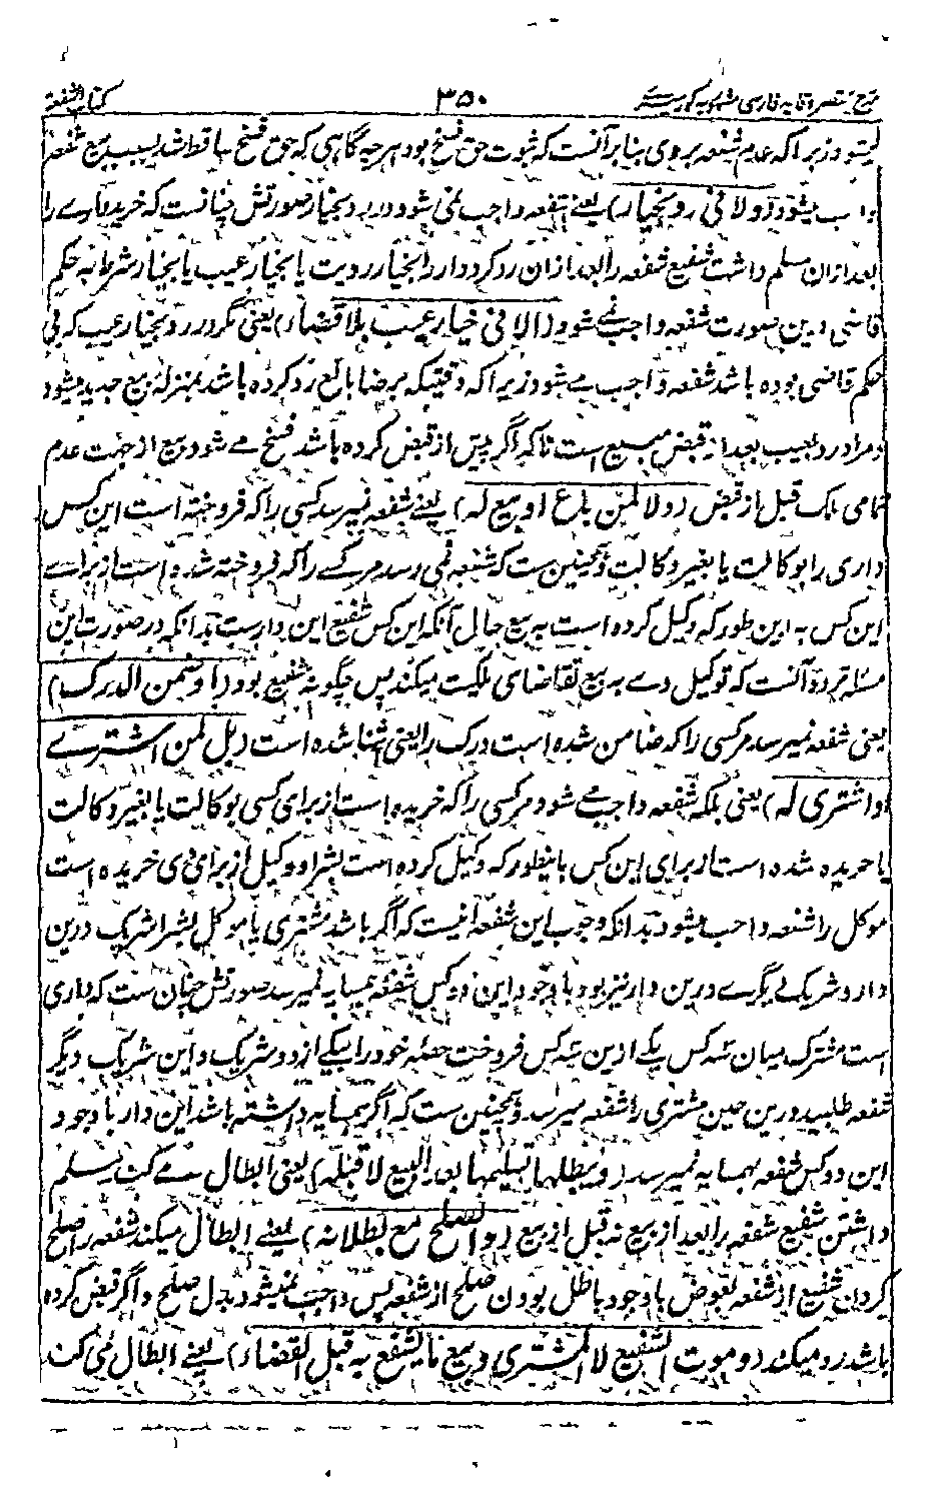 شرح مختصر وقایه فارسی مشهور به کورسیری ۳۵۰ کتاب الشفعة
میشود زیرا که عدم شفعه بر وی بنا بر آنست که ثبوت حق فسخ بود هر چه گاهی که حق فسخ ساقط شد بسبب بیع شفعه
واجب میشود (و لا فی رد بخیار) یعنے شفعه واجب نمی شود در رد بخیار صورتش چنانست که خرید دارے را
بعد ازان مسلم داشت شفیع شفعه را بعد ازان رد کرد دار را بخیار رویت یا بخیار عیب یا بخیار شرط به حکم
قاضی درین صورت شفعه واجب نمے شود (الا فی خیار عیب بلا قضاء) یعنی مگر در رد بخیار عیب که بی
حکم قاضی بوده باشد شفعه واجب مے شود زیرا که وقتیکه برضا بائع رد کرده باشد بمنزله بیع جدید میشود
و مراد رد بعیب بعد از قبض مبیع است تا که اگر پیش از قبض کرده باشد فسخ مے شود بیع از جهت عدم
تمامی ملک قبل از قبض (و لا لمن باع او بیع له) یعنے شفعه نمیرسد کسی را که فروخته است این کس
داری را بوکالت یا بغیر وکالت و همچنین ست که شفعه نمی رسد مر کسے را که فروخته شده است از براے
این کس به این طور که وکیل کرده است به بیع حال آنکه این کس شفیع این دارست بدانکه در صورت این
مسئله تردد آنست که توکیل دے به بیع تقاضای ملکیت میکند پس چگونه شفیع بود (او ضمن الدرک)
یعنی شفعه نمیرسد مر کسی را که ضامن شده است درک را یعنی اشنا شده است (بل لمن اشترے
او اشتری له) یعنی بلکه شفعه واجب مے شود مر کسی را که خریده است از برای کسی بوکالت یا بغیر وکالت
یا خریده شده است از برای این کس باینطور که وکیل کرده است بشرا و وکیل از برای وی خریده است
موکل را شفعه واجب میشود بدانکه وجوب این شفعه اینست که اگر باشد مشتری یا موکل بشرا شریک درین
دار و شریک دیگرے درین دار نیز بود با وجود این دو کس شفعه همسایه نمیرسد صورتش چنان ست که داری
است مشترک میان سه کس یکے ازین سه کس فروخت حصه خود را بیکے از دو شریک و این شریک دیگر
شفعه طلبید درین حین مشتری را شفعه میرسد و همچنین ست که اگر همسایه داشته باشد این دار با وجود
این دو کس شفعه همسایه نمیرسد (و یبطلها تسلیمها بعد البیع لا قبله) یعنی ابطال مے کند تسلیم
داشتن شفیع شفعه را بعد از بیع نه قبل از بیع (و الصلح مع بطلانه) یعنے ابطال میکند شفعه را صلح
کردن شفیع از شفعه بعوض با وجود باطل بودن صلح از شفعه پس واجب نمیشود بدل صلح و اگر قبض کرده
باشد رد میکند (و موت الشفیع لا المشتری و بیع ما یشفع به قبل القضاء) یعنے ابطال می کند